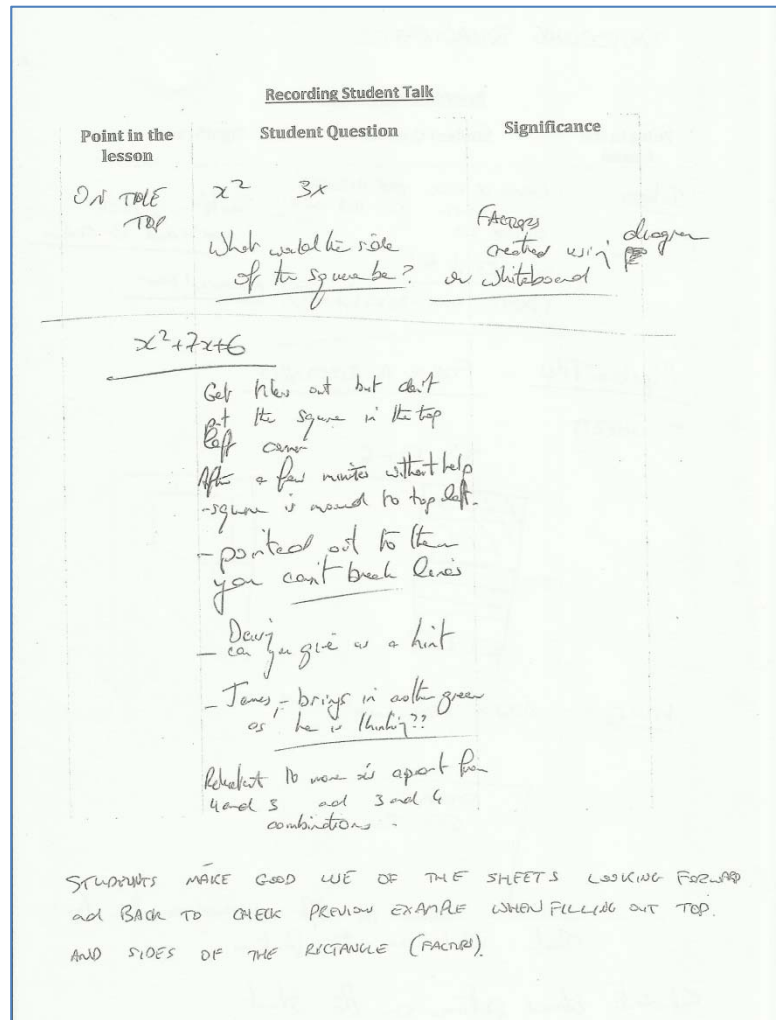 Recording Student Talk
Point in the lesson
Student Question
Significance
ON TABLE TOP
x² 3x
What would the side
of the square be?
FACTORS
created using diagram
or whiteboard
x²+7x+6
Get tiles out but don't
put the square in the top
left corner
After a few minutes without help
-square is moved to top left.
- pointed out to them
you can't break lines
- can you give us a hint
- James, - brings in another green
as he is thinking??
Reluctant to move apart from
4 and 3 and 3 and 4
combinations.
STUDENTS MAKE GOOD USE OF THE SHEETS LOOKING FORWARD
and BACK TO CHECK PREVIOUS EXAMPLE WHEN FILLING OUT TOP.
AND SIDES OF THE RECTANGLE (FACTORS).